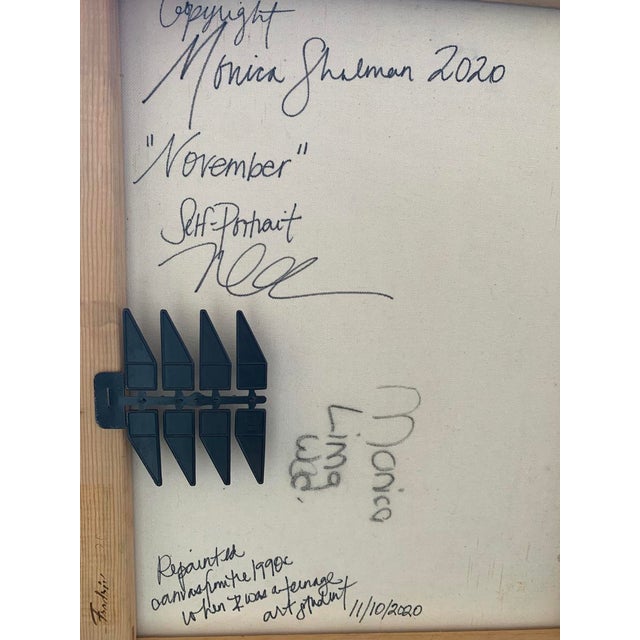 Copyright
Monica Shulman 2020
"November"
Self-Portrait
Monica
Lima
wed.
Repainted
canvas from the 1990s
when I was a teenage
art student 11/10/2020